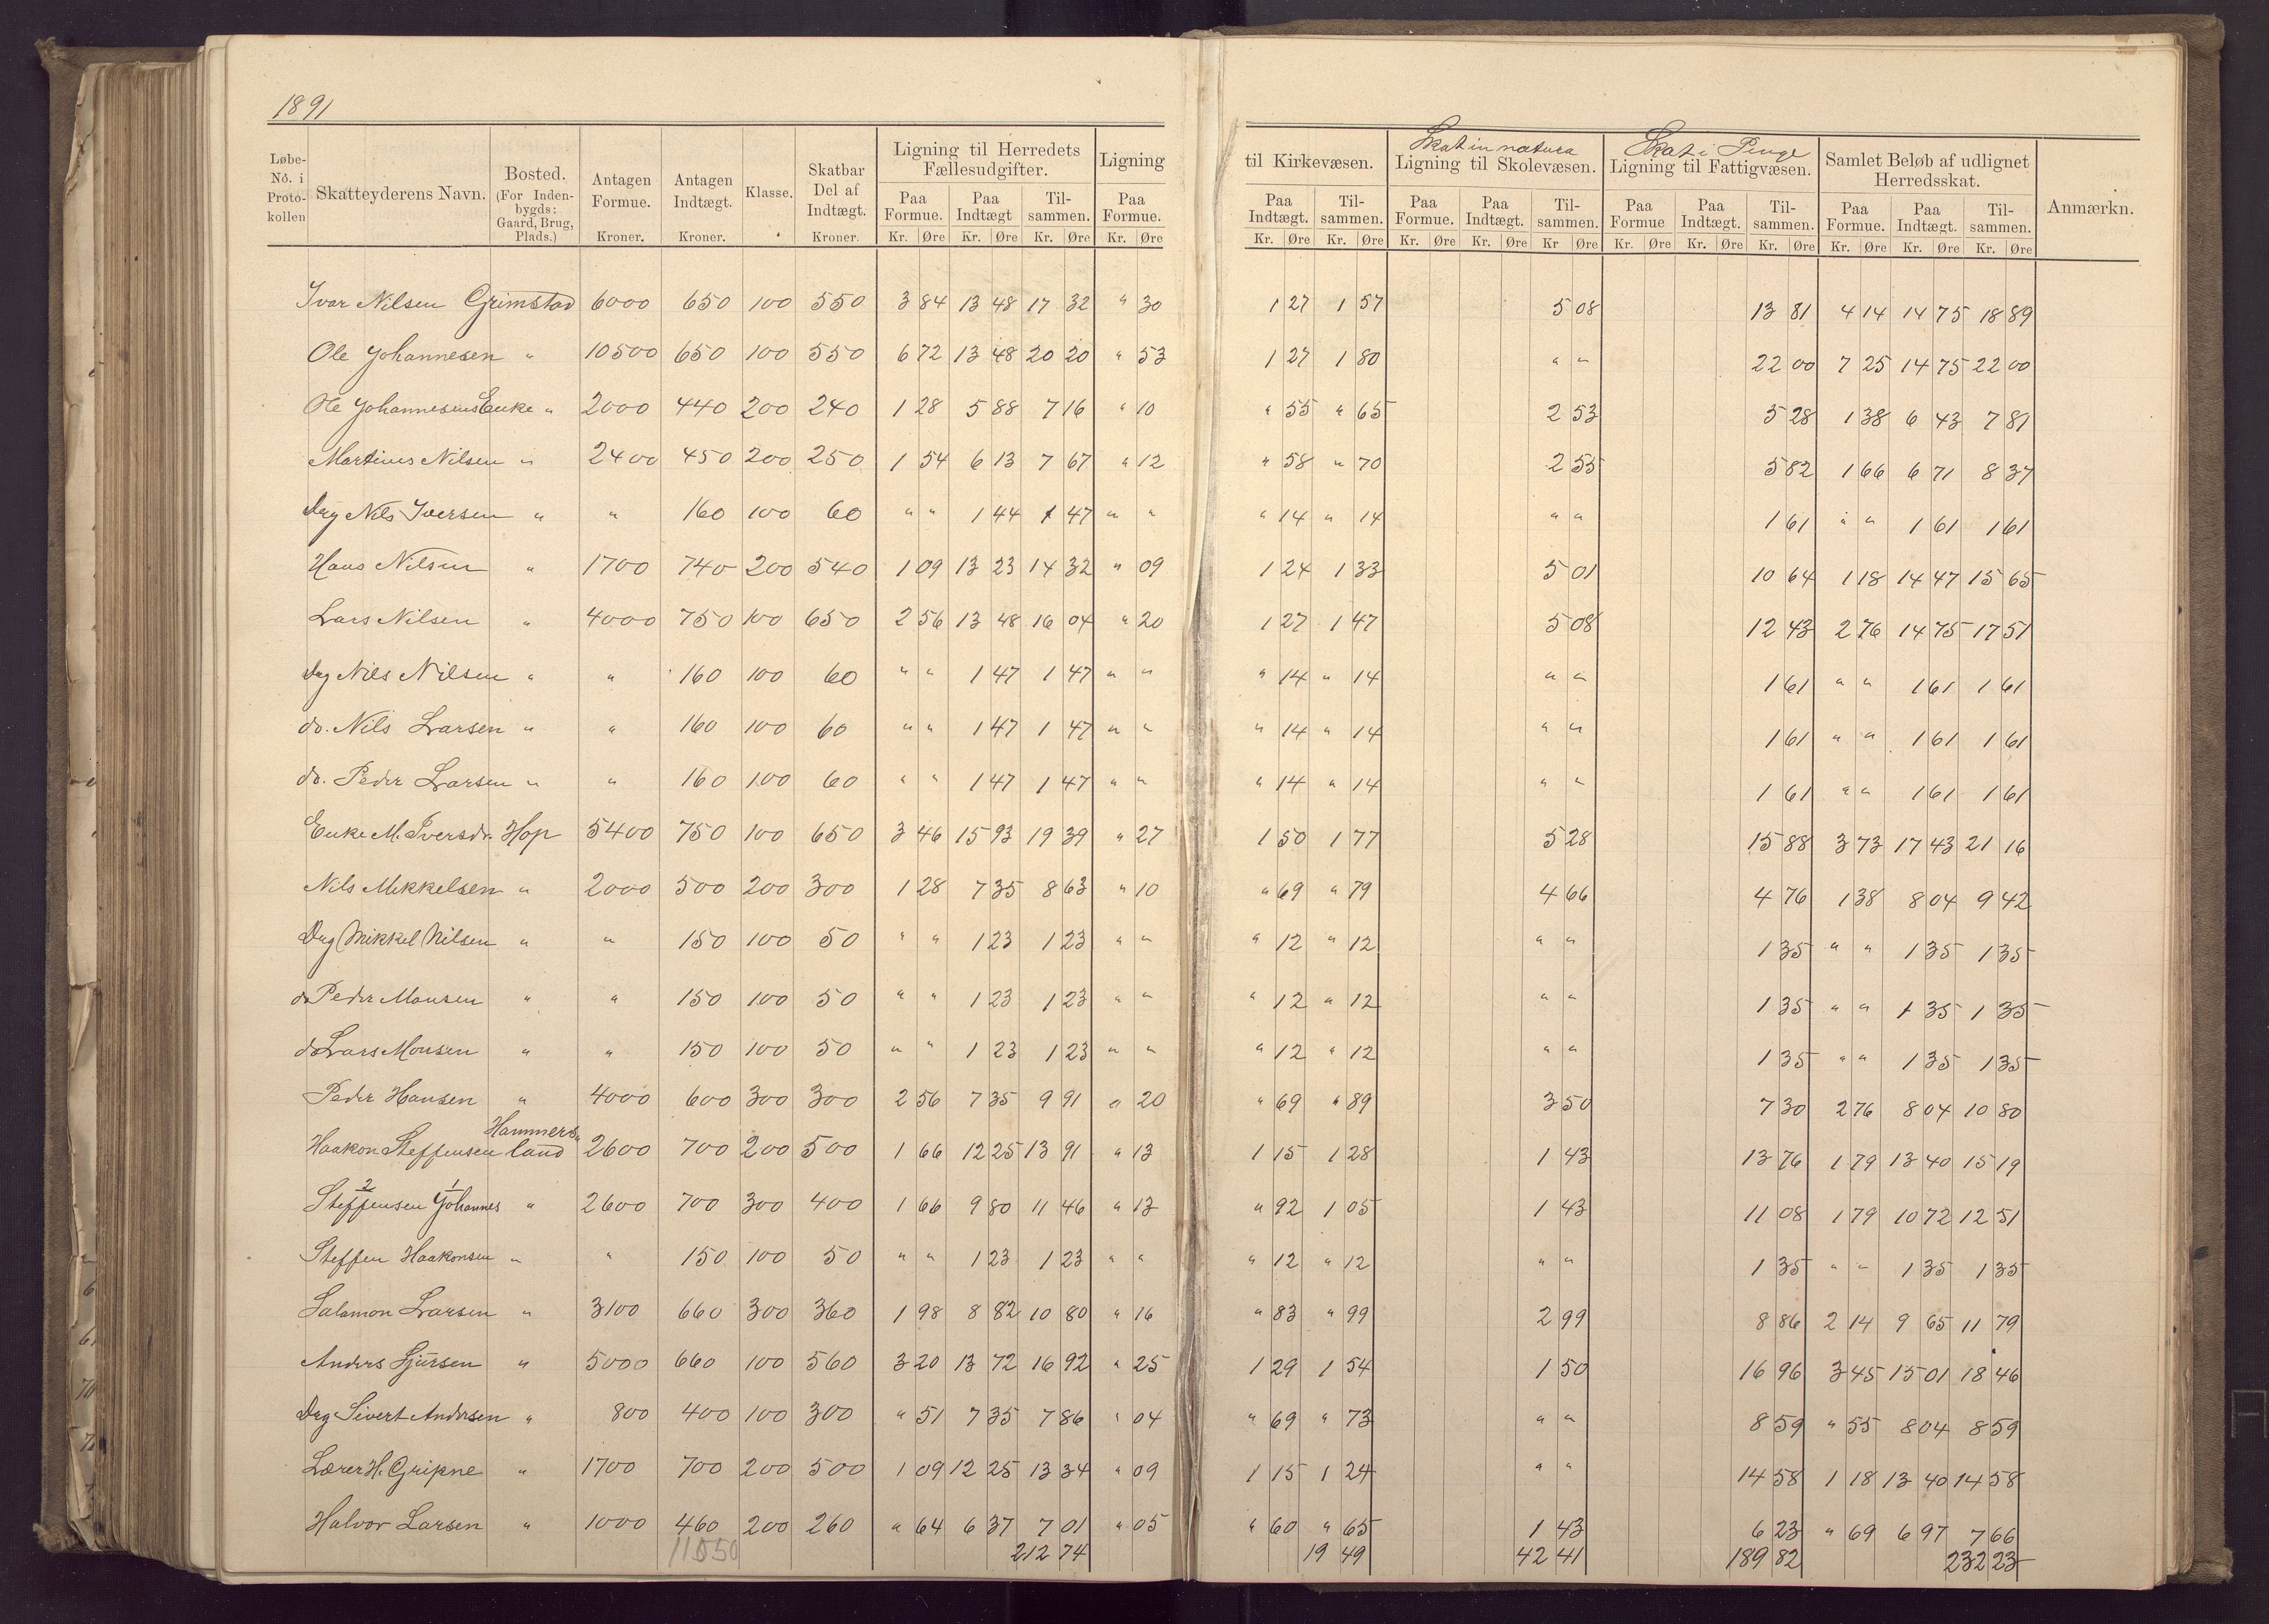 1891
Løbe-No. i Proto-kollen | Skatteyderens Navn. | Bosted. (For Inden-bygds: Gaard, Brug, Plads.) | Antagen Formue. Kroner. | Antagen Indtægt. Kroner. | Klasse. | Skatbar Del af Indtægt. Kroner. | Ligning til Herredets Fællesudgifter. Paa Formue. Kr. Øre | Paa Indtægt Kr. Øre | Til-sammen. Kr. Øre | Ligning Paa Formue. Kr. Øre | til Kirkevæsen. Paa Indtægt. Kr. Øre | Til-sammen. Kr. Øre | Skat in natura Ligning til Skolevæsen. Paa Formue. Kr. Øre | Paa Indtægt. Kr. Øre | Til-sammen. Kr Øre | Skat i Penge Ligning til Fattigvæsen. Paa Formue Kr. Øre | Paa Indtægt. Kr. Øre | Til-sammen. Kr. Øre | Samlet Beløb af udlignet Herredsskat. Paa Formue. Kr. Øre | Paa Indtægt. Kr. Øre | Til-sammen. Kr. Øre | Anmærkn.
Ivar Nilsen Grimstad 6000 650 100 550 3 84 13 48 17 32 " 30 1 27 1 57 5 08 13 81 4 14 14 75 18 89
Ole Johannesen " 10500 650 100 550 6 72 13 48 20 20 " 53 1 27 1 80 " " 22 00 7 25 14 75 22 00
Ole Johannesens Enke " 2000 440 200 240 1 28 5 88 7 16 " 10 " 55 " 65 2 53 5 28 1 38 6 43 7 81
Martinus Nilsen " 2400 450 200 250 1 54 6 13 7 67 " 12 " 58 " 70 2 55 5 82 1 66 6 71 8 37
Drg Nils Iversen " " 160 100 60 " " 1 44 1 47 " " " 14 " 14 " " 1 61 " " 1 61 1 61
Hans Nilsen " 1700 740 200 540 1 09 13 23 14 32 " 09 1 24 1 33 5 01 10 64 1 18 14 47 15 65
Lars Nilsen " 4000 750 100 650 2 56 13 48 16 04 " 20 1 27 1 47 5 08 12 43 2 76 14 75 17 51
Drg Nils Nilsen " " 160 100 60 " " 1 47 1 47 " " " 14 " 14 " " 1 61 " " 1 61 1 61
do. Nils Larsen " " 160 100 60 " " 1 47 1 47 " " " 14 " 14 " " 1 61 " " 1 61 1 61
do. Peder Larsen " " 160 100 60 " " 1 47 1 47 " " " 14 " 14 " " 1 61 " " 1 61 1 61
Enke M. Iversdr. Hop 5400 750 100 650 3 46 15 93 19 39 " 27 1 50 1 77 5 28 15 88 3 73 17 43 21 16
Nils Mikkelsen " 2000 500 200 300 1 28 7 35 8 63 " 10 " 69 " 79 4 66 4 76 1 38 8 04 9 42
Drg Mikkel Nilsen " " 150 100 50 " " 1 23 1 23 " " " 12 " 12 " " 1 35 " " 1 35 1 35
do Peder Monsen " " 150 100 50 " " 1 23 1 23 " " " 12 " 12 " " 1 35 " " 1 35 1 35
do Lars Monsen " " 150 100 50 " " 1 23 1 23 " " " 12 " 12 " " 1 35 " " 1 35 1 35
Peder Hansen " 4000 600 300 300 2 56 7 35 9 91 " 20 " 69 " 89 3 50 7 30 2 76 8 04 10 80
Haakon Steffensen Hammersland 2600 700 200 500 1 66 12 25 13 91 " 13 1 15 1 28 1 43 13 76 1 79 13 40 15 19
2 1
Steffensen Johannes " 2600 700 300 400 1 66 9 80 11 46 " 13 " 92 1 05 1 43 11 08 1 79 10 72 12 51
Steffen Haakonsen " " 150 100 50 " " 1 23 1 23 " " " 12 " 12 " " 1 35 " " 1 35 1 35
Salamon Larsen " 3100 660 300 360 1 98 8 82 10 80 " 16 " 83 " 99 2 99 8 86 2 14 9 65 11 79
Anders Sjursen " 5000 660 100 560 3 20 13 72 16 92 " 25 1 29 1 54 1 50 16 96 3 45 15 01 18 46
Drg Sivert Andersen " 800 400 100 300 " 51 7 35 7 86 " 04 " 69 " 73 " " 8 59 " 55 8 04 8 59
Lærer H. Gripne " 1700 700 200 500 1 09 12 25 13 34 " 09 1 15 1 24 " " 14 58 1 18 13 40 14 58
Halvor Larsen " 1000 460 200 260 " 64 6 37 7 01 " 05 " 60 " 65 1 43 6 23 " 69 6 97 7 66
11050 212 74 19 49 42 41 189 82 232 23